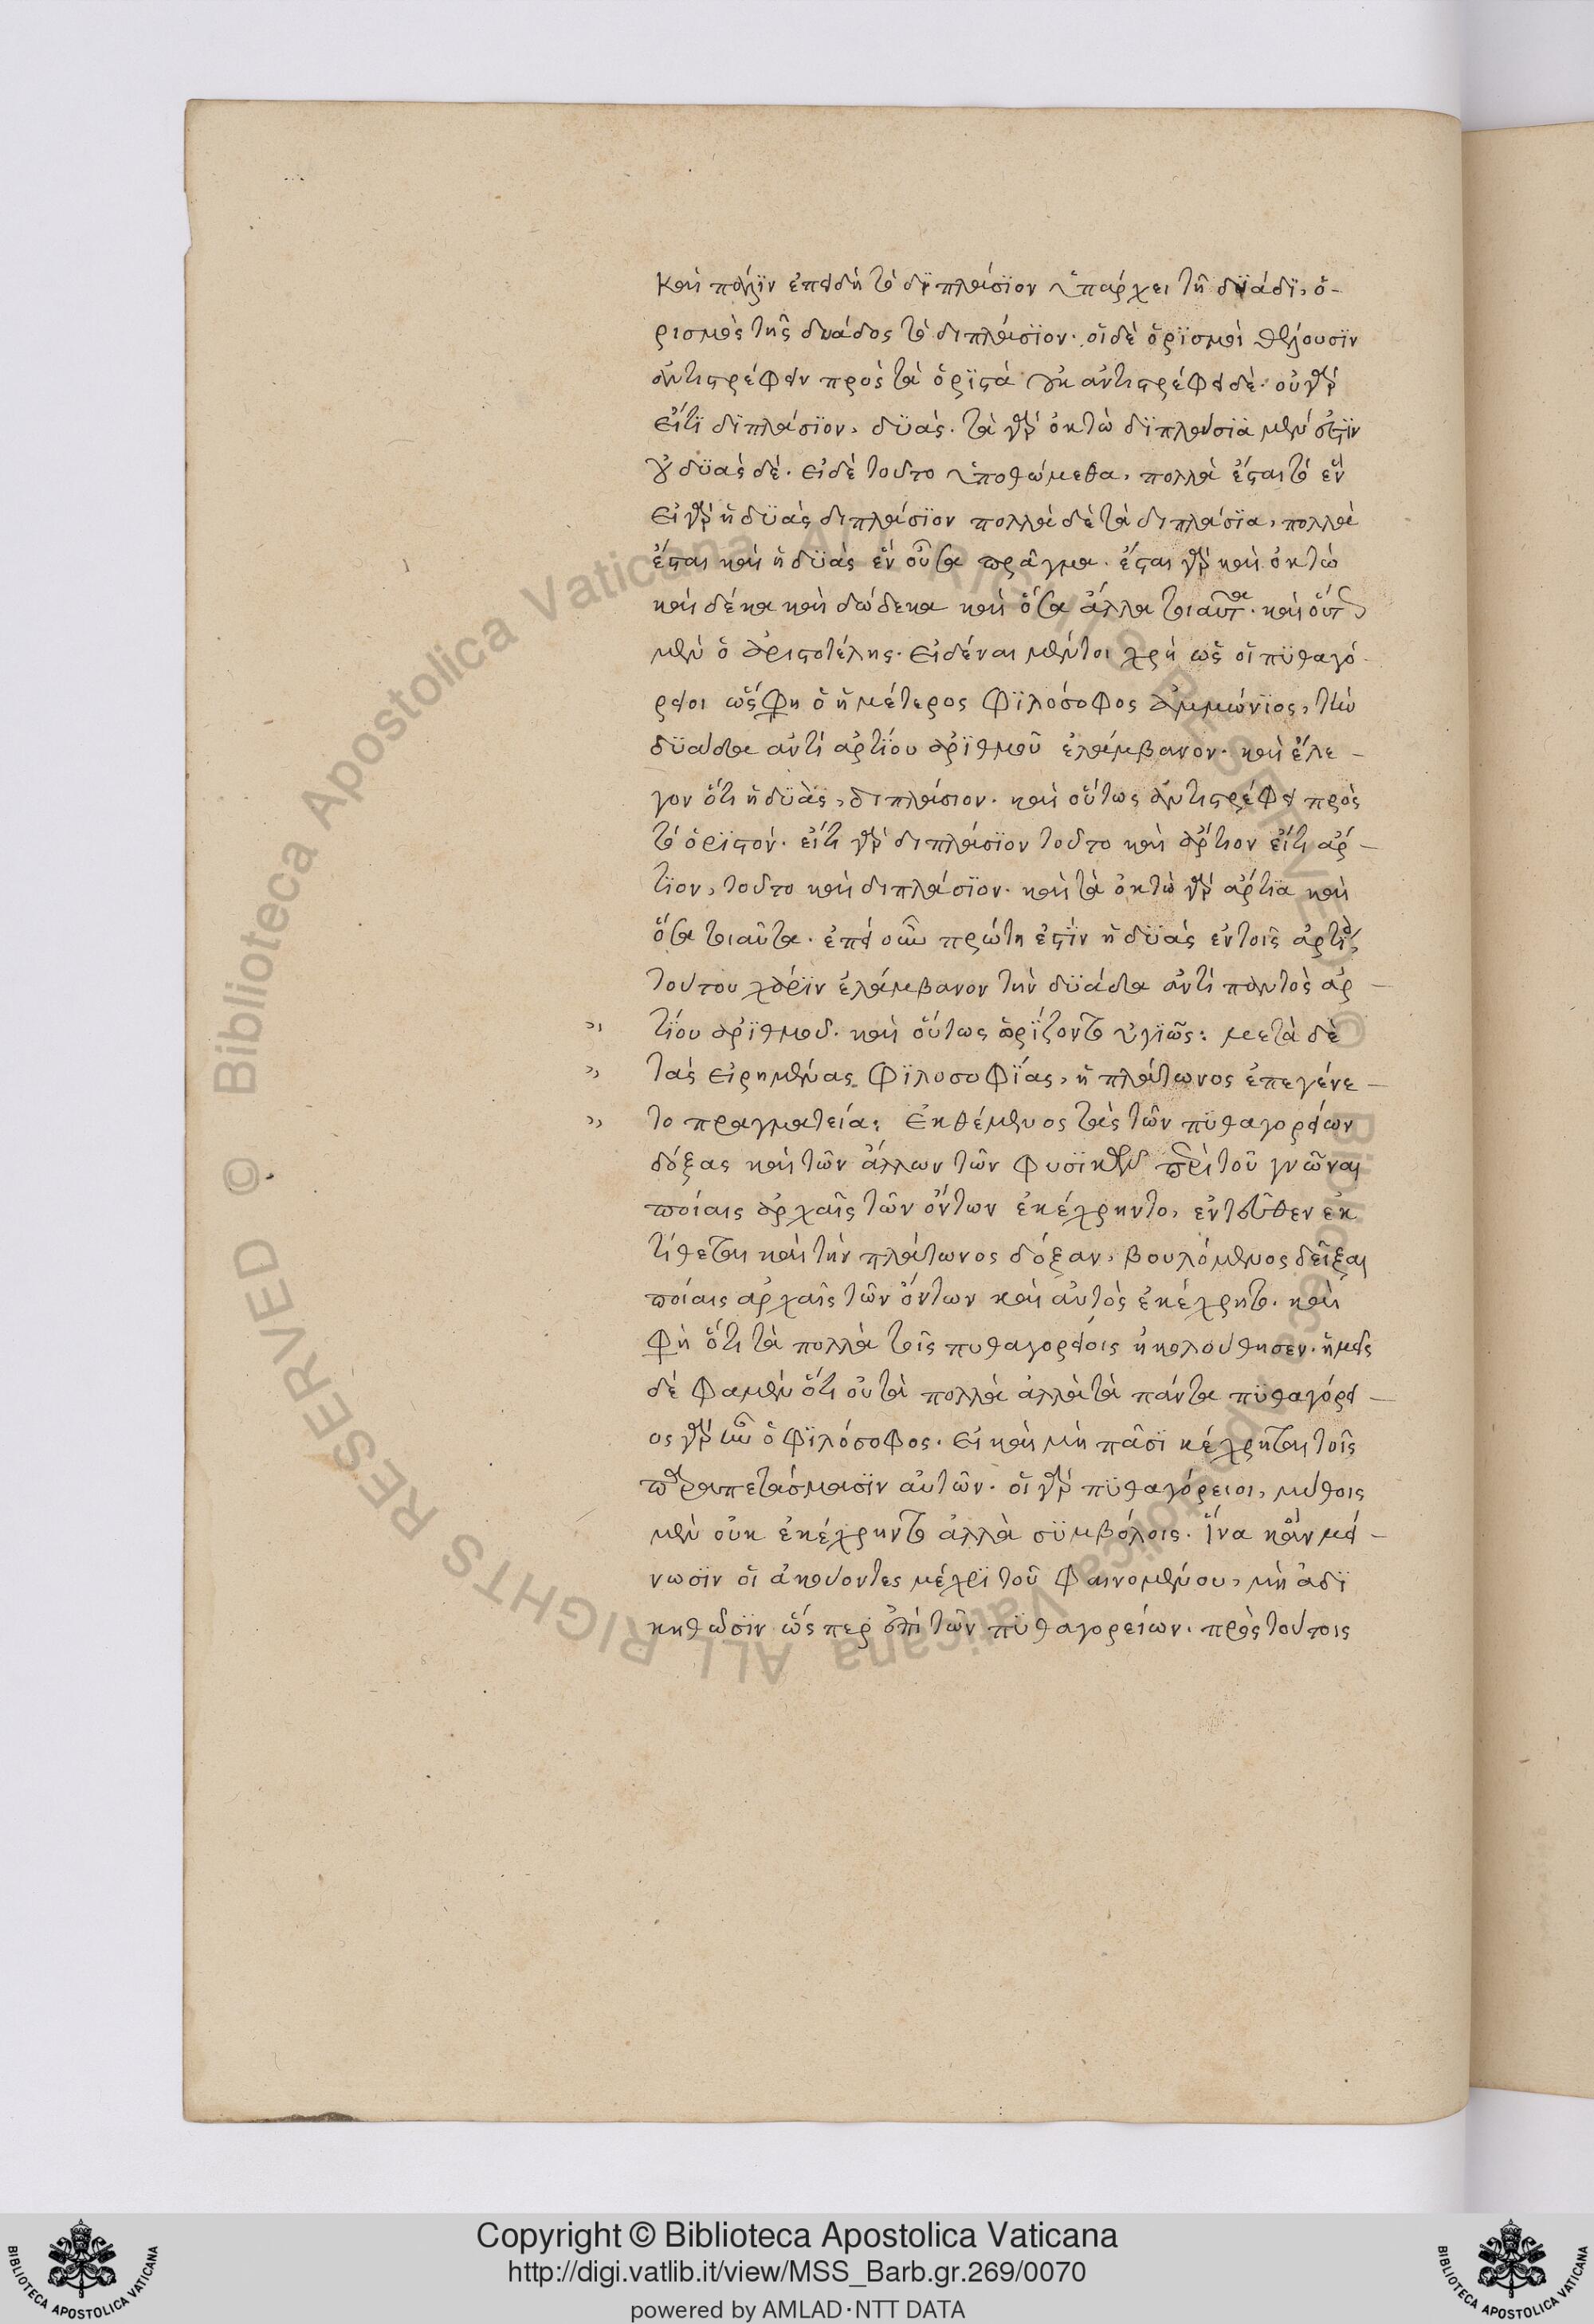 καὶ πάλϊν ἐπειδὴ τὸ δϊπλάσϊον ὑπάρχει τῆ δϋάδϊ, ὁ-
ρισμὸς τῆς δυάδος τὸ διπλάσϊον. οἱ δὲ ὁρϊσμοὶ θέλουσϊν
ἀντιστρέφειν πρὸς τὰ ὁρϊστὰ οὐκ ἀντιστρέφει δὲ. οὐ γὰρ
εἴ τϊ δϊπλάσϊον, δϋὰς. τὰ γὰρ ὀκτὼ δϊπλάσϊα μέν ἐστϊν
οὐ δϋὰς δὲ. εἰ δὲ τοῦτο ὑποθώμεθα, πολλὰ ἔσται τὸ ἓν
εἰ γὰρ ἡ δϋὰς διπλάσϊον πολλὰ δὲ τὰ διπλάσϊα, πολλὰ
ἔσται καὶ ἡ δϋὰς ἓν οὖσα πρᾶγμα. ἔσται γὰρ καὶ ὀκτὼ
καὶ δέκα καὶ δώδεκα καὶ ὅσα ἄλλα τοιαῦτα. καὶ οὕτως
μὲν ὁ ἀριστοτέλης. εἰδέναι μέντοι χρὴ ὡς οἱ πϋθαγό-
ρειοι ὥς φη ὁ ἡμέτερος φϊλόσοφος ἀμμώνϊος, τὴν
δϋάδα ἀντὶ ἀρτίου ἀρϊθμοῦ ἐλάμβανον. καὶ ἔλε-
γον ὅτι ἡ δϋὰς, διπλάσιον. καὶ οὕτως ἀντιστρέφει πρὸς
τὸ ὁρϊστόν. εἴ τι γὰρ διπλάσϊον τοῦτο καὶ ἄρτιον εἴ τι ἄρ-
τϊον, τοῦτο καὶ διπλάσϊον. καὶ τὰ ὀκτὼ γὰρ ἄρτϊα καὶ
ὅσα τοιαῦτα. ἐπεὶ οὖν πρώτη ἐστϊν ἡ δϋὰς ἐν τοῖς ἀρτίοις,
τούτου χάρϊν ἐλάμβανον τὴν δϋάδα ἀντὶ παντὸς ἀρ-
τίου ἀρϊθμοῦ. καὶ οὕτως ὁρΐζοντο ὑγϊῶς: μετὰ δὲ
τὰς εἰρημένας φϊλοσοφΐας, ἡ πλάτωνος ἐπεγένε-
το πραγματεία: Ἐκθέμενος τὰς τῶν πϋθαγορείων
δόξας καὶ τῶν ἄλλων τῶν φυσϊκῶν περὶ τοῦ γνῶναι
ποίαις ἀρχαῖς τῶν ὄντων ἐκέχρηντο, ἐντεῦθεν ἐκ
τίθεται καὶ τὴν πλάτωνος δόξαν, βουλόμενος δεῖξαι
ποίαις ἀρχαῖς τῶν ὄντων καὶ αὐτὸς ἐκέχρητο. καὶ
φὴ ὅτι τὰ πολλὰ τοῖς πυθαγορείοις ἠκολούθησεν. ἡμεῖς
δὲ φαμὲν ὅτι οὐ τὰ πολλὰ ἀλλὰ τὰ πάντα πϋθαγόρει-
ος γὰρ ἦν ὁ φϊλόσοφος. εἰ καὶ μὴ πᾶσϊ κέχρηται τοῖς
παραπετάσμασϊν αὐτῶν. οἱ γὰρ πϋθαγόρειοι, μύθοις
μὲν οὐκ ἐκέχρηντο ἀλλὰ σϋμβόλοις. ἵνα κἂν μεί-
νωσϊν οἱ ἀκούοντες μέχρϊ τοῦ φαινομένου, μὴ ἀδϊ
κηθῶσϊν ὥς περ ἐπὶ τῶν πϋθαγορείων. πρὸς τούτοις
Copyright © Biblioteca Apostolica Vaticana
http://digi.vatlib.it/view/MSS_Barb.gr.269/0070
powered by AMLAD·NTT DATA